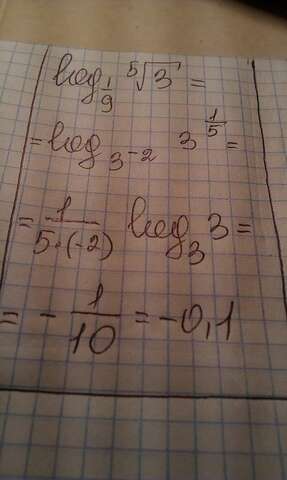 log_{1/9} ⁵√3 =
= log_{3^{-2}} 3^{1/5} =
= 1/(5·(-2)) log_3 3 =
= - 1/10 = -0,1